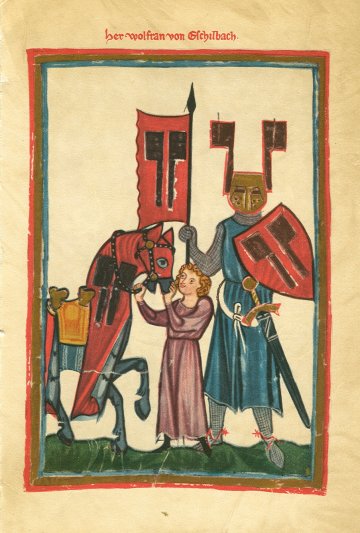 her wolfran von Eschilbach.